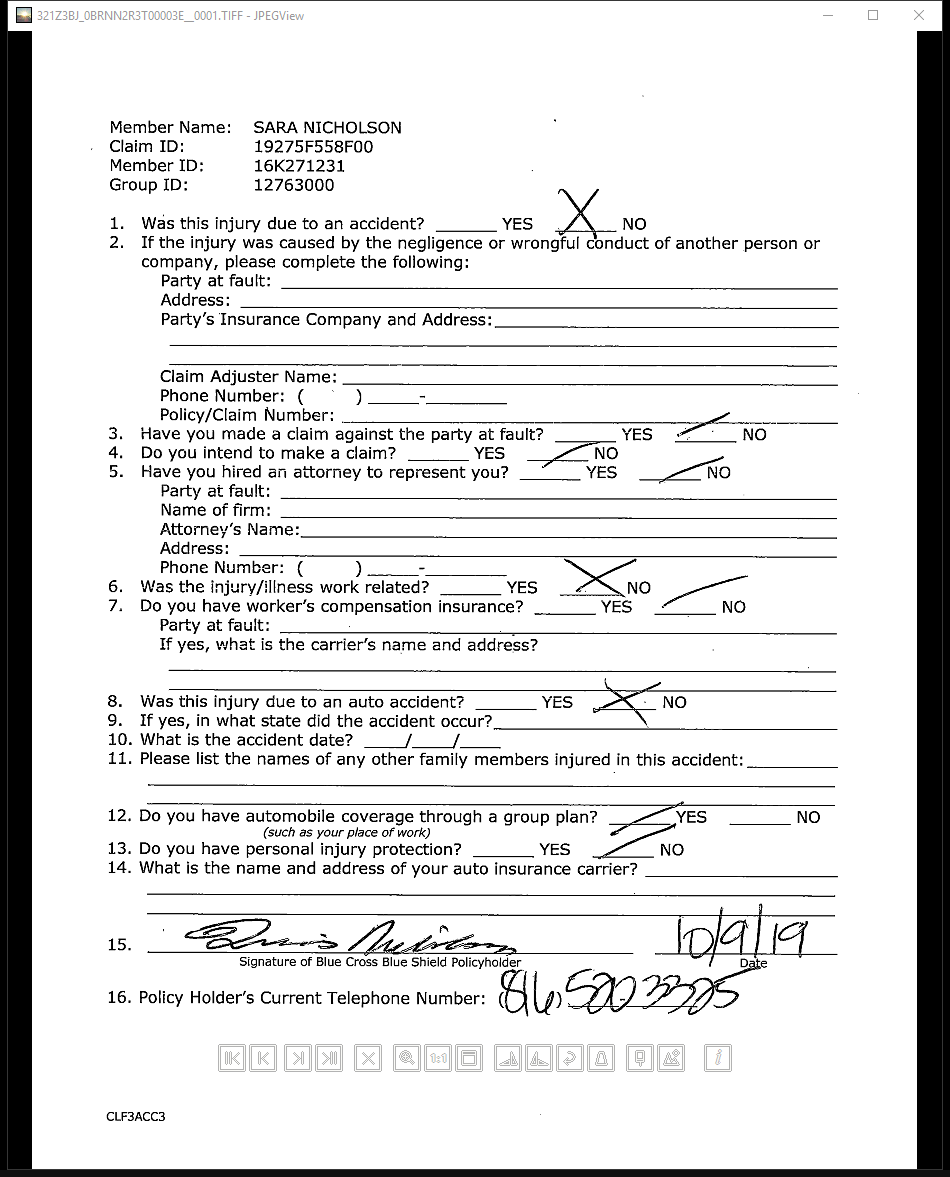 321Z3BJ_0BRNN2R3T00003E__0001.TIFF - JPEGView
Member Name: SARA NICHOLSON
Claim ID: 19275F558F00
Member ID: 16K271231
Group ID: 12763000
1. Was this injury due to an accident? ______ YES __X__ NO
2. If the injury was caused by the negligence or wrongful conduct of another person or
company, please complete the following:
Party at fault:
Address:
Party's Insurance Company and Address:
Claim Adjuster Name:
Phone Number: ( ) _____-________
Policy/Claim Number:
3. Have you made a claim against the party at fault? ______ YES ______ NO
4. Do you intend to make a claim? ______ YES ______ NO
5. Have you hired an attorney to represent you? ______ YES ______ NO
Party at fault:
Name of firm:
Attorney's Name:
Address:
Phone Number: ( ) _____-________
6. Was the injury/illness work related? ______ YES __X__ NO
7. Do you have worker's compensation insurance? ______ YES ______ NO
Party at fault:
If yes, what is the carrier's name and address?
8. Was this injury due to an auto accident? ______ YES __X__ NO
9. If yes, in what state did the accident occur?
10. What is the accident date? ____/____/____
11. Please list the names of any other family members injured in this accident:
12. Do you have automobile coverage through a group plan? ______ YES ______ NO
(such as your place of work)
13. Do you have personal injury protection? ______ YES ______ NO
14. What is the name and address of your auto insurance carrier?
15. Nicholson 10/9/19
Signature of Blue Cross Blue Shield Policyholder Date
16. Policy Holder's Current Telephone Number: 816
1:1
CLF3ACC3